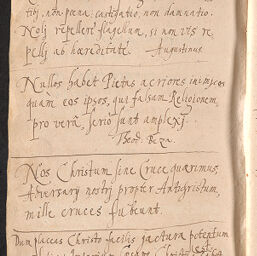 tio, non pœna: castigatio, non damnatio.
Noli repellere flagellum, si non vis re
pelli ab hæreditate. Augustinus.
Nullos habet Pietas acriores inimicos
quam eos ipsos, qui falsam Religionem,
pro vera, serio sunt amplexi.
Theod. Beza.
Nos Christum sine Cruce quærimus,
Adversarij nostri propter Antichristum
mille cruces subeunt.
Dum placeas Christo facilis jactura potentum